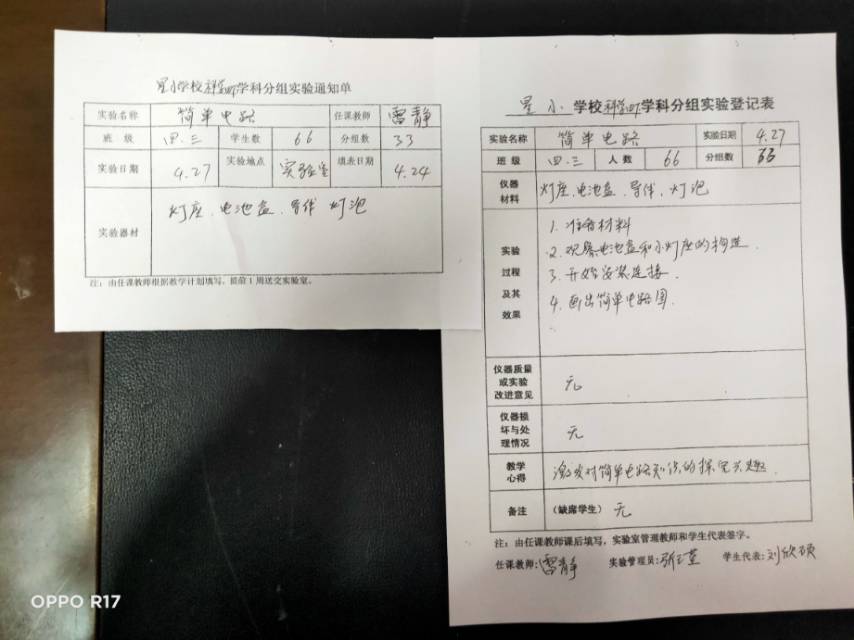 星小学校科学学科分组实验通知单
实验名称 简单电路 任课教师 雷静
班 级 四.三 学生数 66 分组数 33
实验日期 4.27 实验地点 实验室 填表日期 4.24
实验器材 灯座、电池盒、导线 灯泡
注:由任课教师根据教学计划填写,提前1周送交实验室。
星小 学校科学学科分组实验登记表
实验名称 简单电路 实验日期 4.27
班 级 四.三 人 数 66 分组数 33
仪器
材料 灯座、电池盒、导线、灯泡
实验
过程
及其
效果
1. 准备材料
2. 观察电池盒和小灯座的构造
3. 开始安装连接.
4. 画出简单电路图.
仪器质量
或实验
改进意见 无
仪器损
坏与处
理情况 无
教学
心得 激发对简单电路知识的探究兴趣.
备注 (缺席学生) 无
注:由任课教师课后填写,实验室管理教师和学生代表签字。
任课教师:雷静 实验管理员: 学生代表:刘欣
OPPO R17